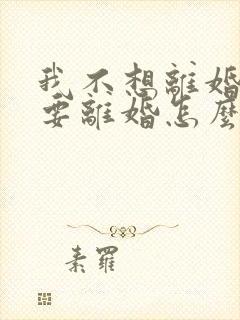 我不想離婚
要離婚怎麼
素羅